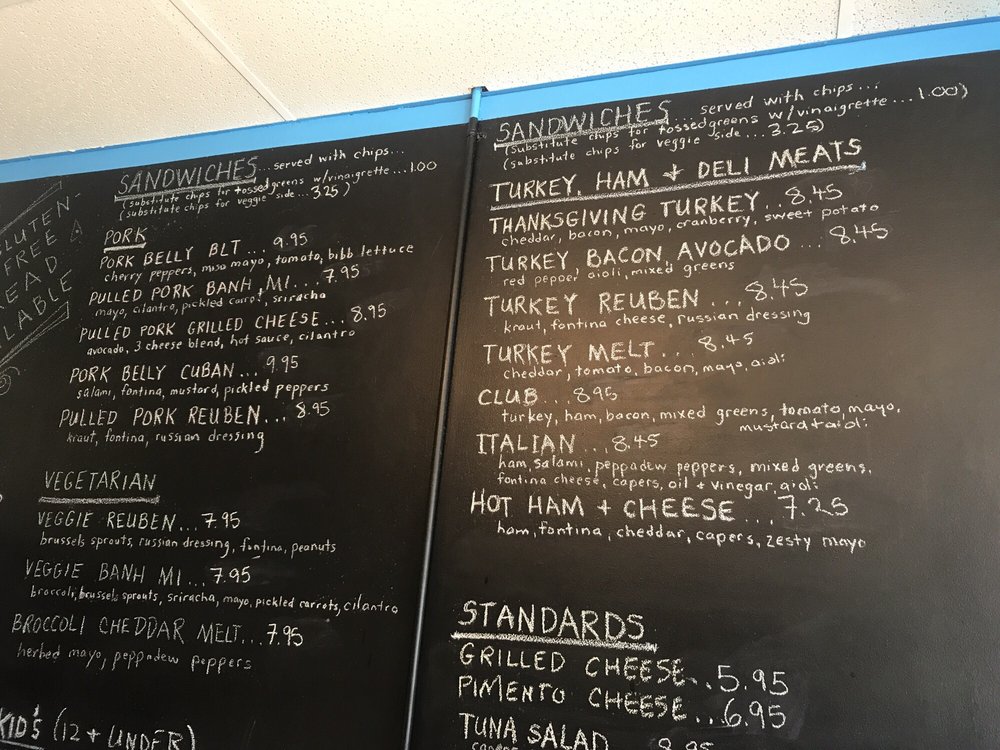 LUTEN-
FREE
EAD
LABLE
SANDWICHES ...served with chips...
(substitute chips for tossed greens w/vinaigrette...1.00
(substitute chips for veggie side...3.25)
PORK
PORK BELLY BLT...9.95
cherry peppers, miso mayo, tomato, bibb lettuce
PULLED PORK BANH MI...7.95
mayo, cilantro, pickled carrot, sriracha
PULLED PORK GRILLED CHEESE...8.95
avocado, 3 cheese blend, hot sauce, cilantro
PORK BELLY CUBAN...9.95
salami, fontina, mustard, pickled peppers
PULLED PORK REUBEN...8.95
kraut, fontina, russian dressing
VEGETARIAN
VEGGIE REUBEN...7.95
brussels sprouts, russian dressing, fontina, peanuts
VEGGIE BANH MI...7.95
broccoli, brussels sprouts, sriracha, mayo, pickled carrots, cilantro
BROCCOLI CHEDDAR MELT...7.95
herbed mayo, peppadew peppers
KID'S (12 + UNDER)
SANDWICHES ... served with chips...
(substitute chips for tossed greens w/vinaigrette...1.00)
(substitute chips for veggie side...3.25)
TURKEY, HAM + DELI MEATS
THANKSGIVING TURKEY...8.45
cheddar, bacon, mayo, cranberry, sweet potato
TURKEY BACON AVOCADO...8.45
red pepper, aioli, mixed greens
TURKEY REUBEN...8.45
kraut, fontina cheese, russian dressing
TURKEY MELT...8.45
cheddar, tomato, bacon, mayo, aioli
CLUB...8.95
turkey, ham, bacon, mixed greens, tomato, mayo,
mustard + aioli
ITALIAN...8.45
ham, salami, peppadew peppers, mixed greens,
fontina cheese, capers, oil + vinegar, aioli
HOT HAM + CHEESE...7.25
ham, fontina, cheddar, capers, zesty mayo
STANDARDS
GRILLED CHEESE...5.95
PIMENTO CHEESE...6.95
TUNA SALAD 8.95
capers